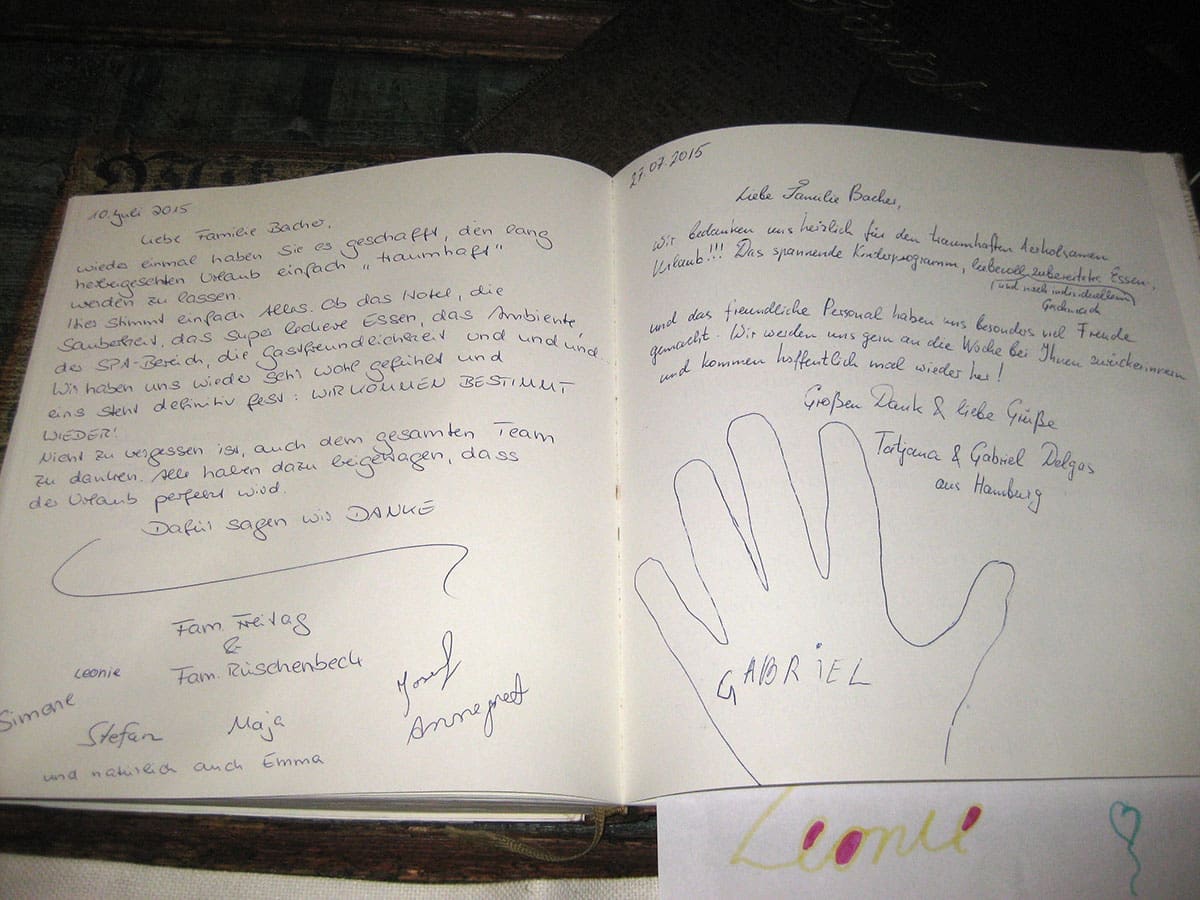 10. Juli 2015
Liebe Familie Bacher,
wieder einmal haben Sie es geschafft, den lang
herbeigesehnten Urlaub einfach „traumhaft"
werden zu lassen.
Hier stimmt einfach Alles. Ob das Hotel, die
Sauberkeit, das super leckere Essen, das Ambiente,
der SPA-Bereich, die Gastfreundlichkeit und und und...
Wir haben uns wieder sehr wohl gefühlt und
eins steht definitiv fest: WIR KOMMEN BESTIMMT
WIEDER!
Nicht zu vergessen ist, auch dem gesamten Team
zu danken. Alle haben dazu beigetragen, dass
der Urlaub perfekt wird.
Dafür sagen wir DANKE
Fam. Freitag
&
Fam. Rüschenbeck
Leonie
Simone
Stefan
Maja
Josef
Annegret
und natürlich auch Emma
27.07.2015
Liebe Familie Bacher,
Wir bedanken uns herzlich für den traumhaften erholsamen
Urlaub!!! Das spannende Kinderprogramm, liebevoll zubereitete Essen,
(und nach individuellem
Geschmack)
und das freundliche Personal haben uns besonders viel Freude
gemacht. Wir werden uns gern an die Woche bei Ihnen zurückerinnern
und kommen hoffentlich mal wieder her!
Großen Dank & liebe Grüße
Tatjana & Gabriel Delgas
aus Hamburg
GABRiEL
Leonie